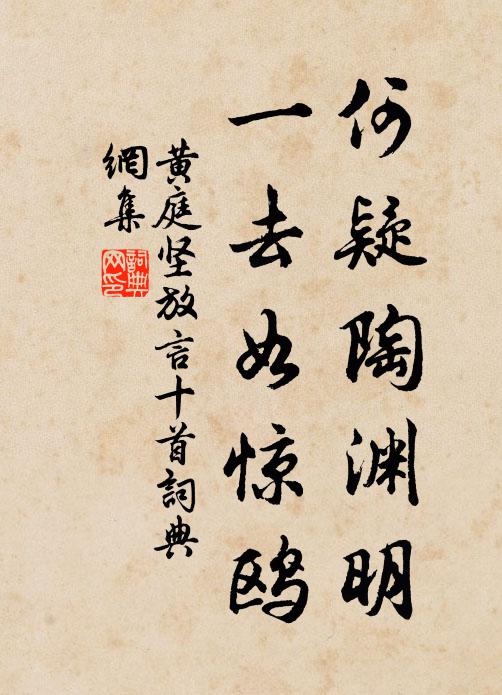 何疑陶渊明
一去如惊鸥
黄庭坚放言十首詞典
網集
詞典网印